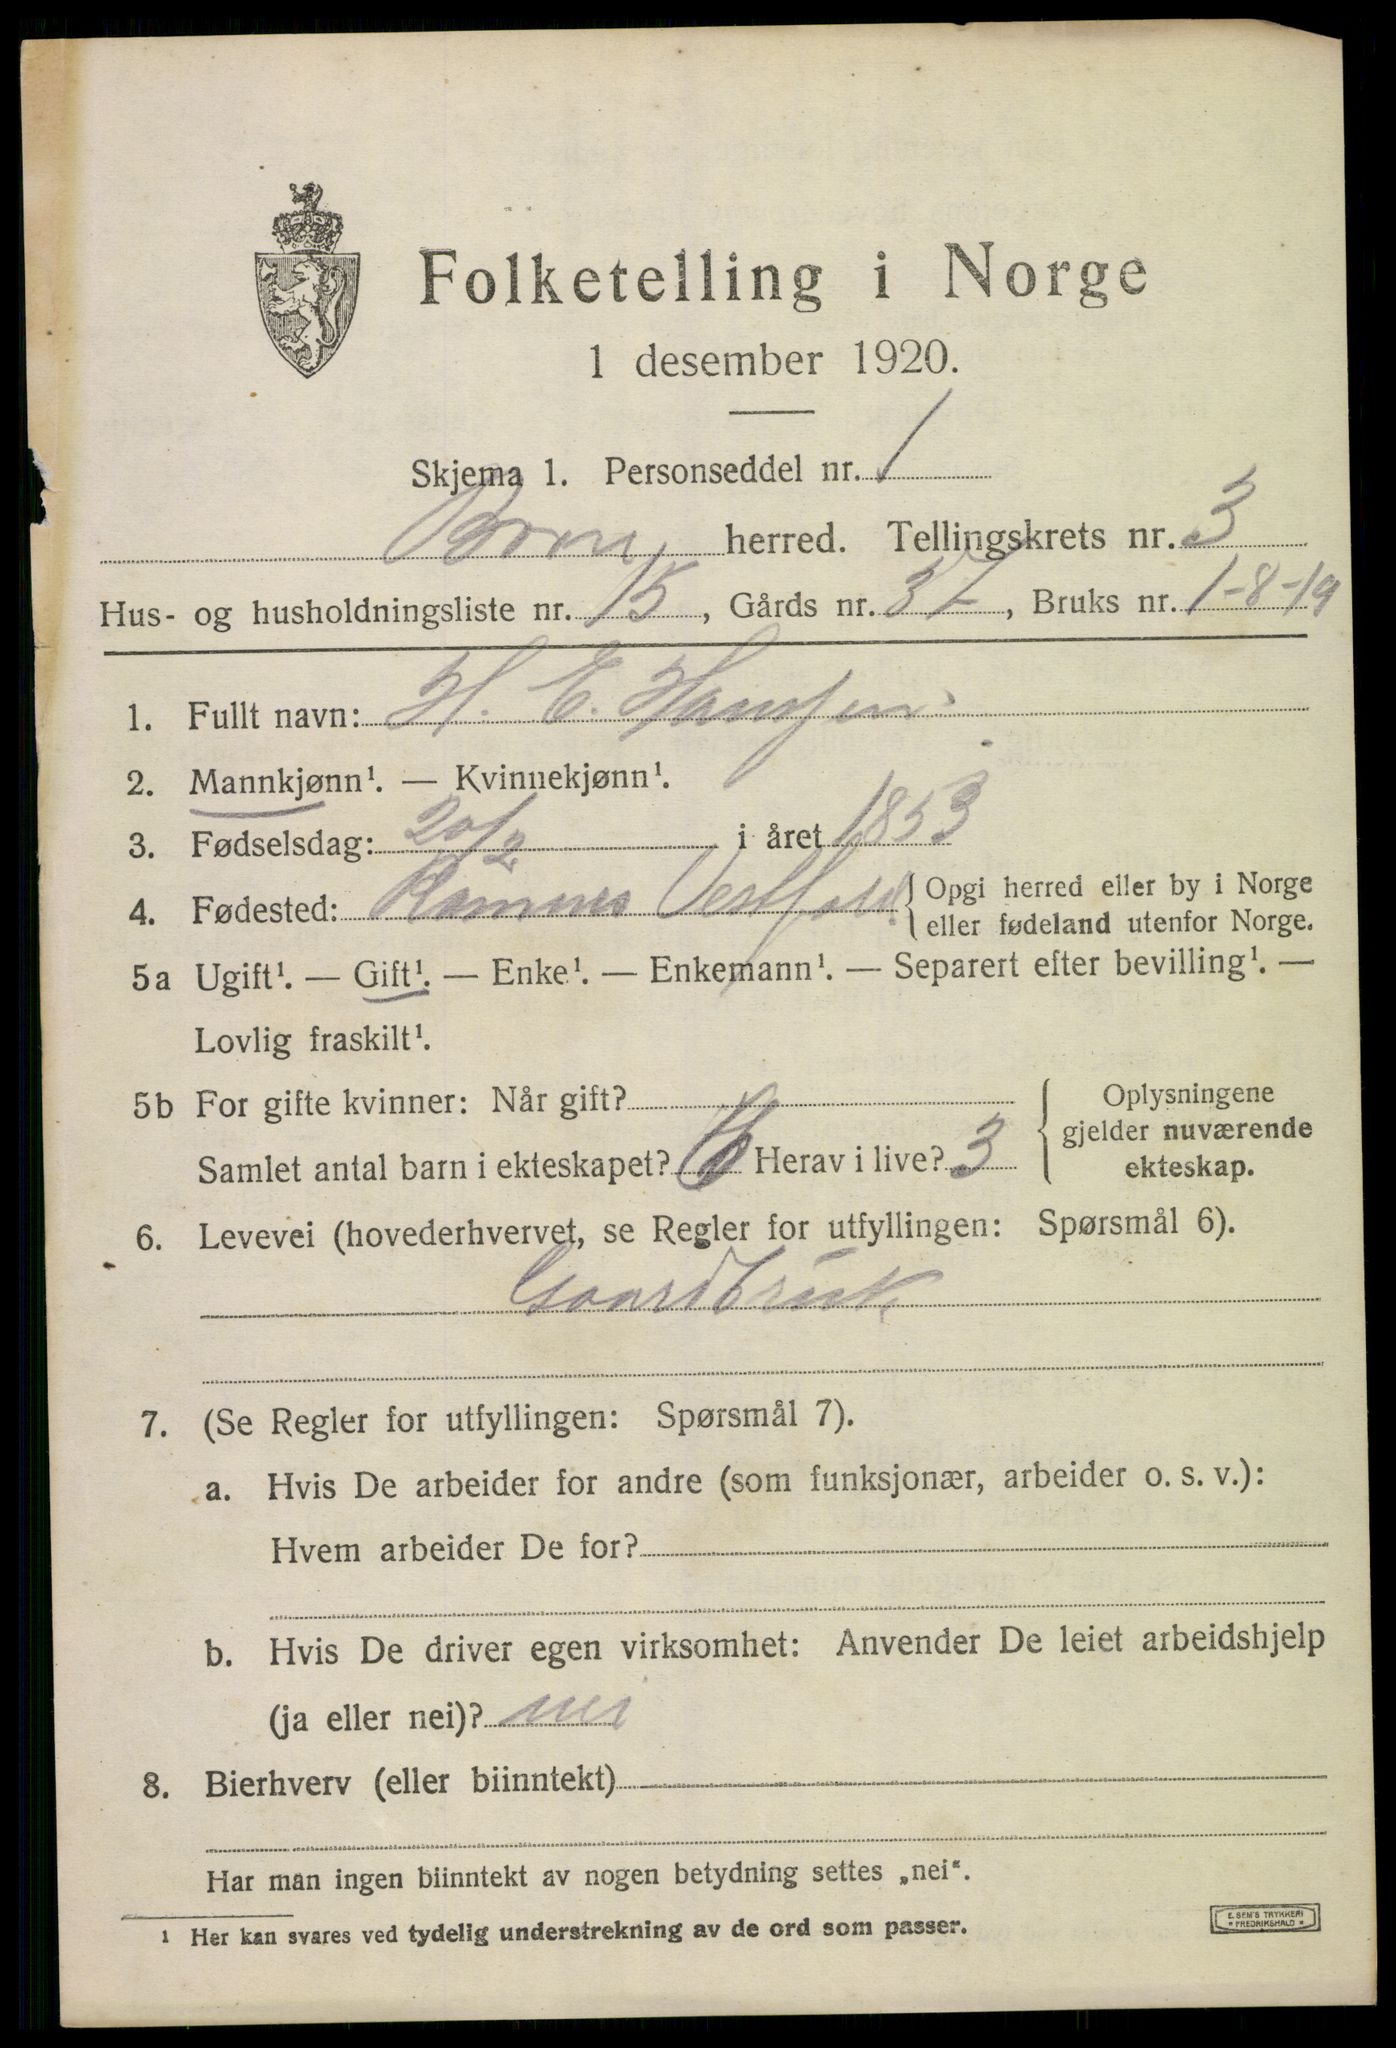 Folketelling i Norge
1 desember 1920.
Skjema 1. Personseddel nr. 1
Born herred. Tellingskrets nr. 3
Hus- og husholdningsliste nr. 15, Gårds nr. 37, Bruks nr. 1-8-19
1. Fullt navn: H. E. Hansen
2. Mannkjønn¹. — Kvinnekjønn¹.
3. Fødselsdag: 20/2 i året 1853
4. Fødested: Ramnes Vestfold { Opgi herred eller by i Norge
eller fødeland utenfor Norge.
5a Ugift¹. — Gift¹. — Enke¹. — Enkemann¹. — Separert efter bevilling¹. —
Lovlig fraskilt¹.
5b For gifte kvinner: Når gift?
Samlet antal barn i ekteskapet? Herav i live? 3
{ Oplysningene
gjelder nuværende
ekteskap.
6. Levevei (hovederhvervet, se Regler for utfyllingen: Spørsmål 6).
Gaardbruk
7. (Se Regler for utfyllingen: Spørsmål 7).
a. Hvis De arbeider for andre (som funksjonær, arbeider o. s. v.):
Hvem arbeider De for?
b. Hvis De driver egen virksomhet: Anvender De leiet arbeidshjelp
(ja eller nei)? nei
8. Bierhverv (eller biinntekt)
Har man ingen biinntekt av nogen betydning settes „nei“.
¹ Her kan svares ved tydelig understrekning av de ord som passer.
E. SEM'S TRYKKERI
* FREDRIKSHALD *